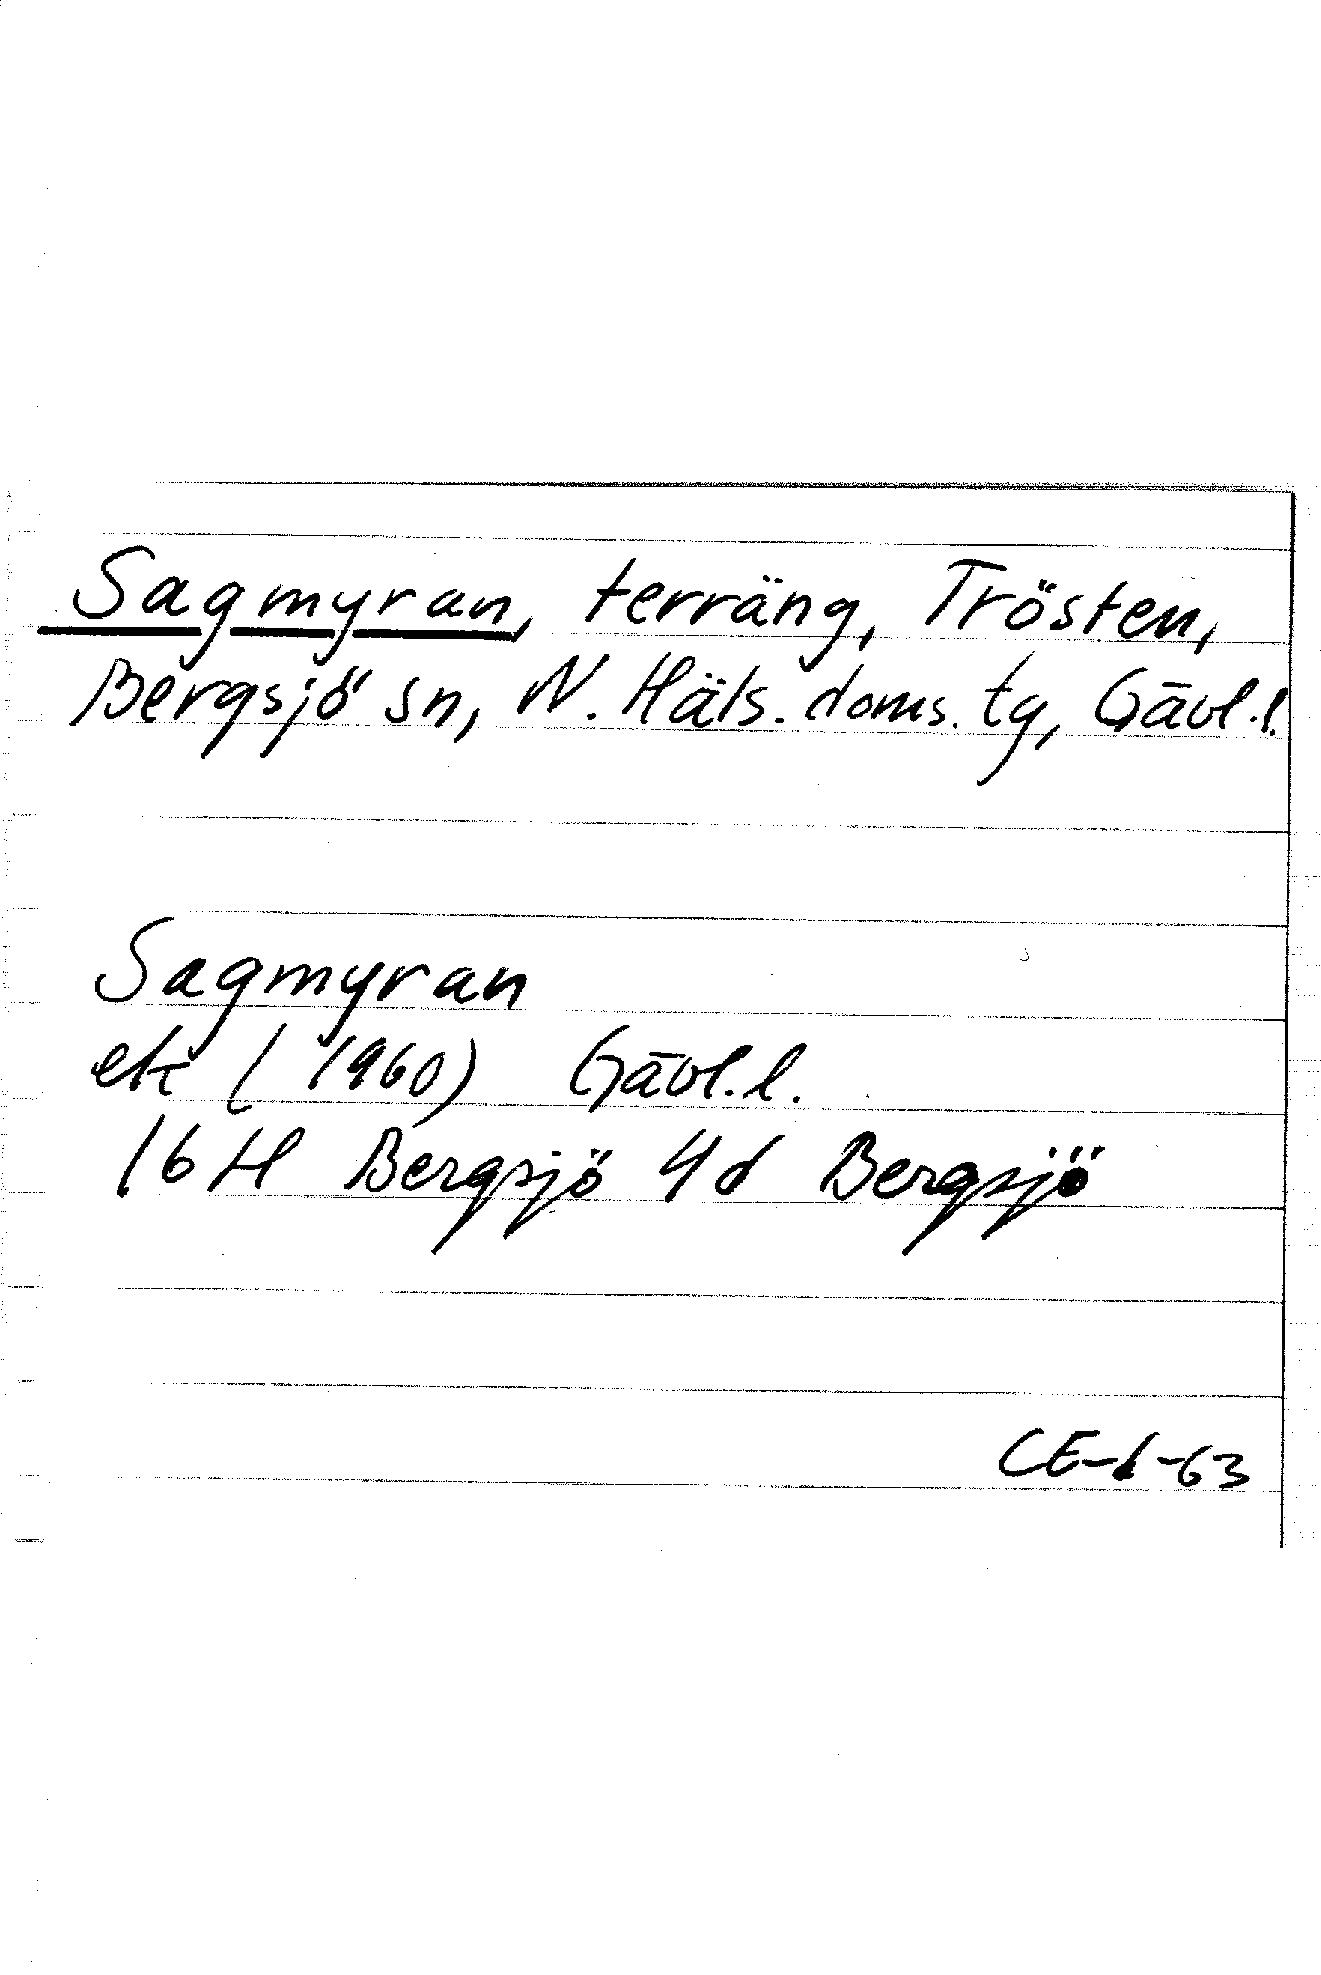 Sagmyran, terräng, Trösten,
Bergsjö sn, N. Häls. doms. tg, Gävl.l.
Sagmyran
ek (1960) Gävl.l.
16H Bergsjö 4d Bergsjö
CE-d-63